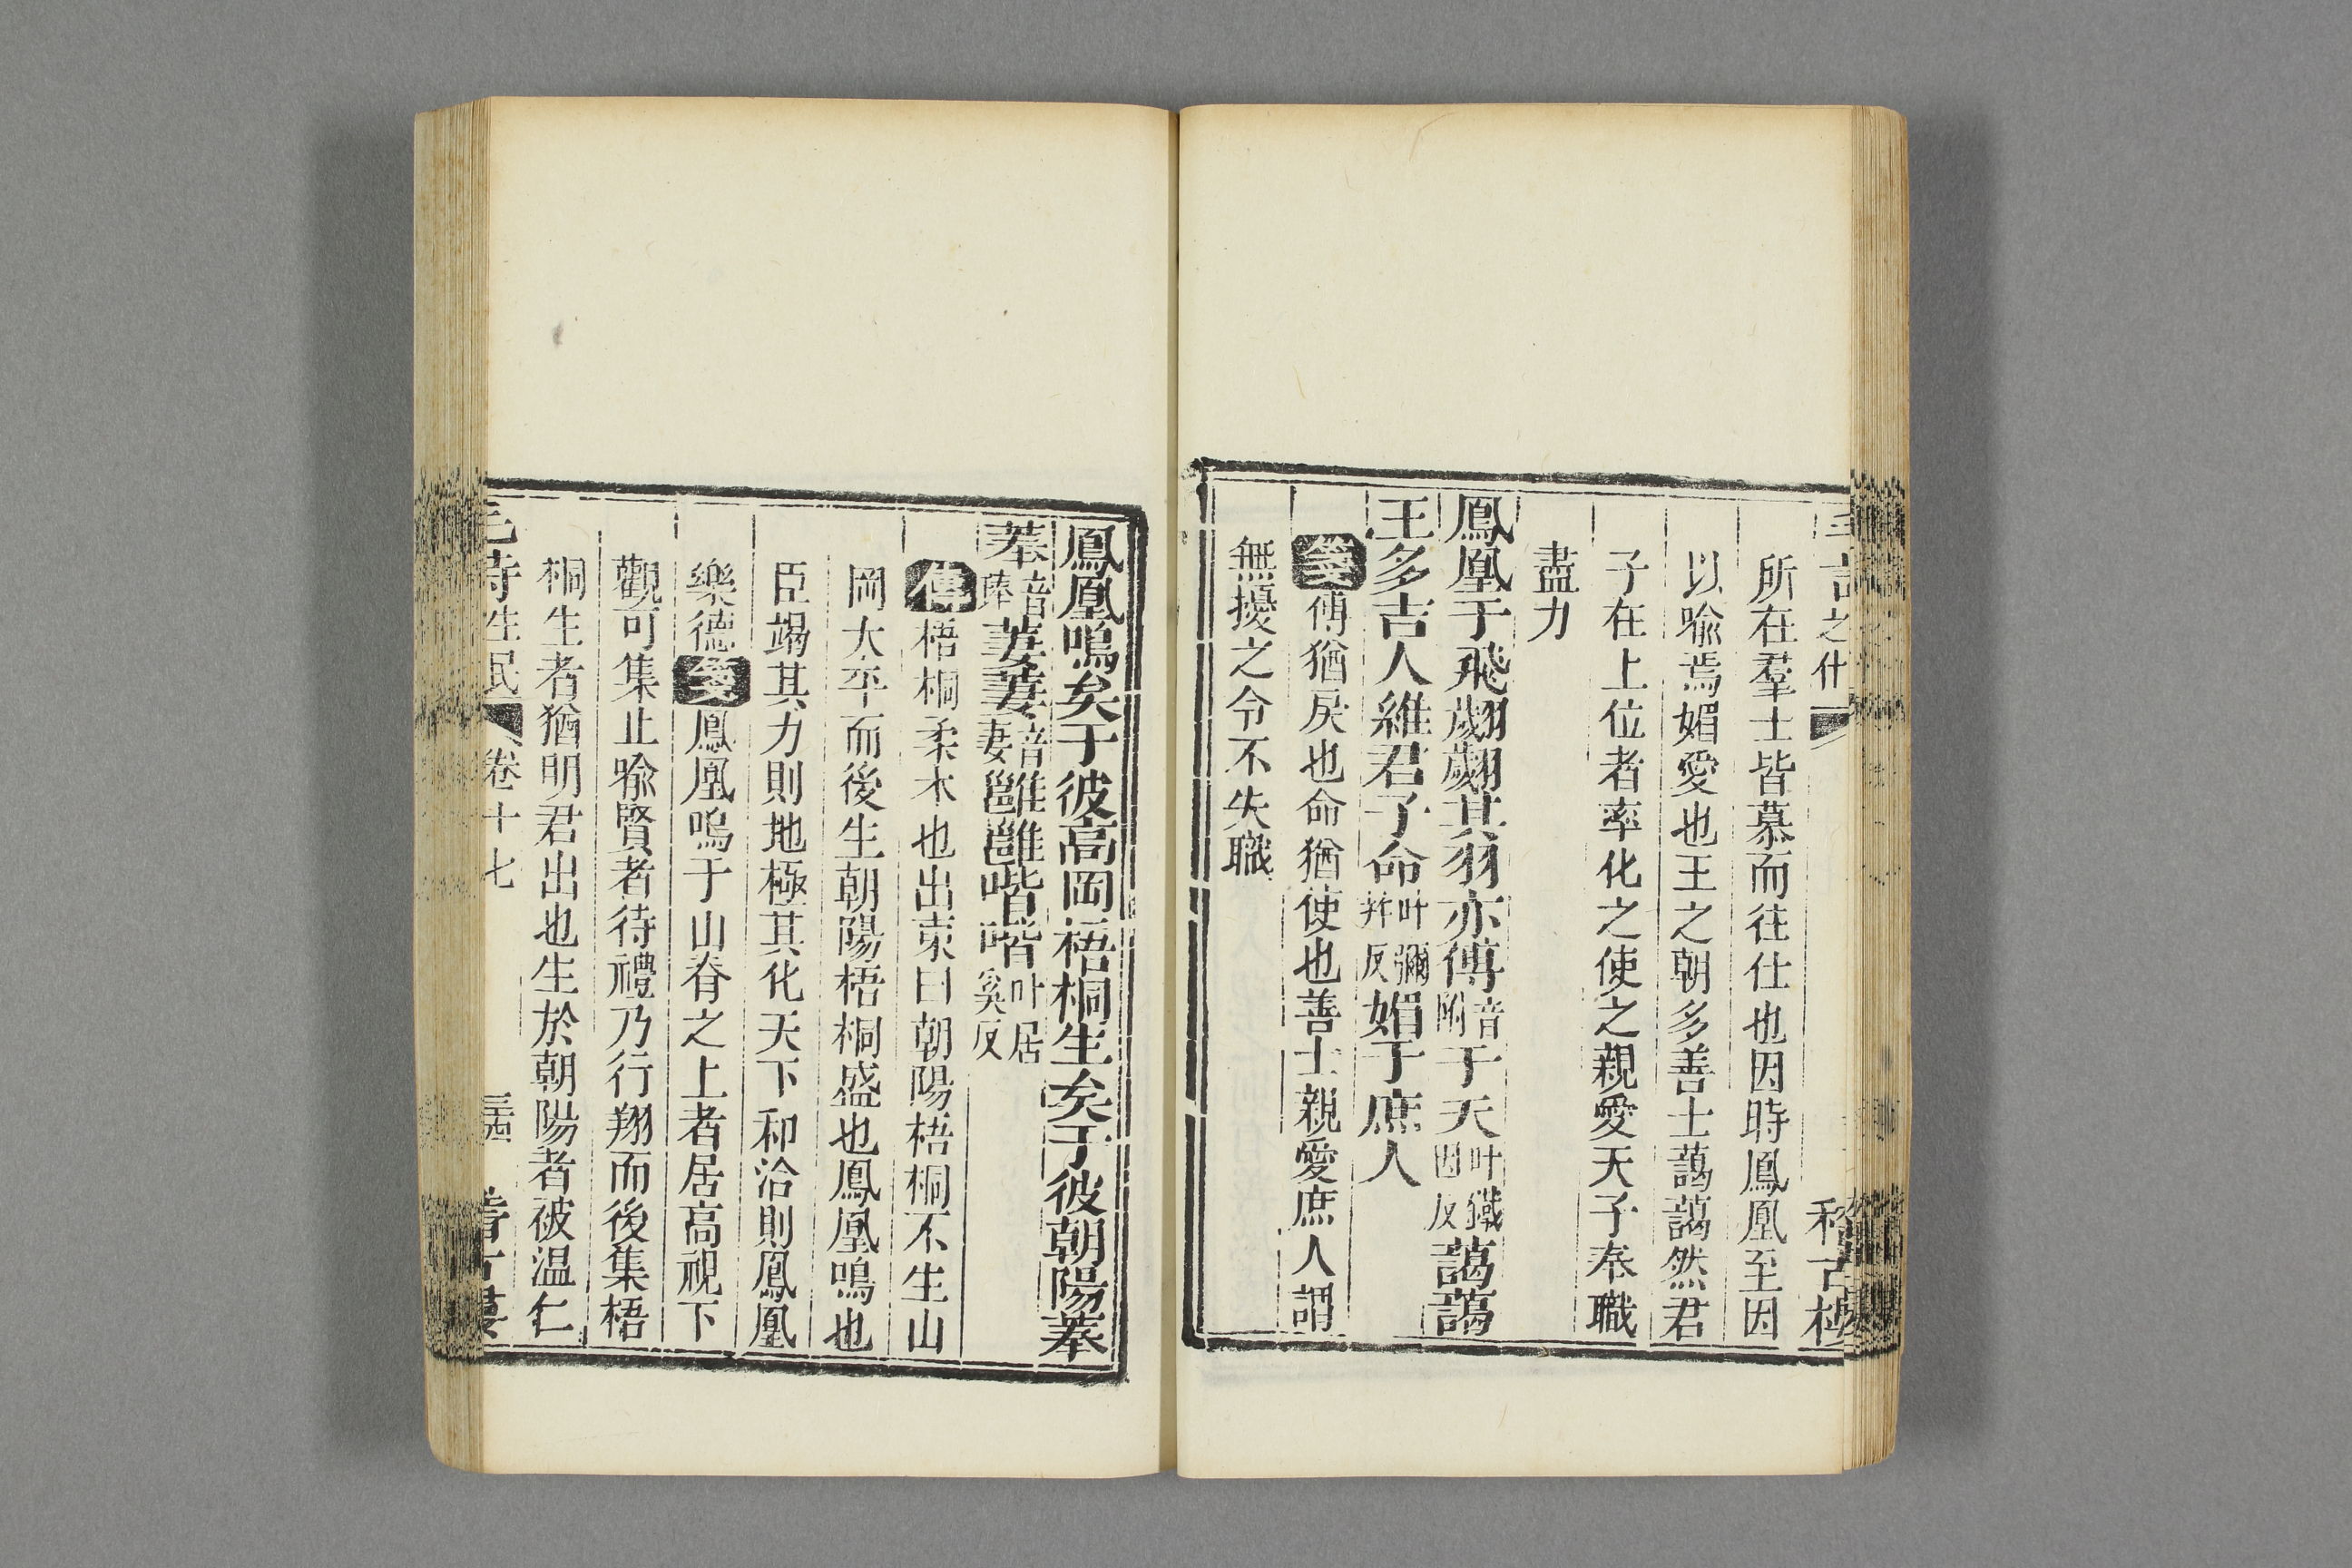 之什
所在羣士皆慕而往仕也因時鳳凰至因
以喻焉媚愛也王之朝多善士藹藹然君
子在上位者率化之使之親愛天子奉職
盡力
鳳凰于飛翽翽其羽亦傅音附于天叶鐵因反藹藹
王多吉人維君子命叶彌幷反媚于庶人
箋傅猶戾也命猶使也善士親愛庶人謂
無擾之令不失職
鳳凰鳴矣于彼高岡梧桐生矣于彼朝陽菶
菶音唪萋萋音妻雝雝喈喈叶居奚反
傳梧桐柔木也出東曰朝陽梧桐不生山
岡太平而後生朝陽梧桐盛也鳳凰鳴也
臣竭其力則地極其化天下和洽則鳳凰
樂德箋鳳凰鳴于山脊之上者居高視下
觀可集止喻賢者待禮乃行翔而後集梧
桐生者猶明君出也生於朝陽者被温仁
毛詩生民 卷十七